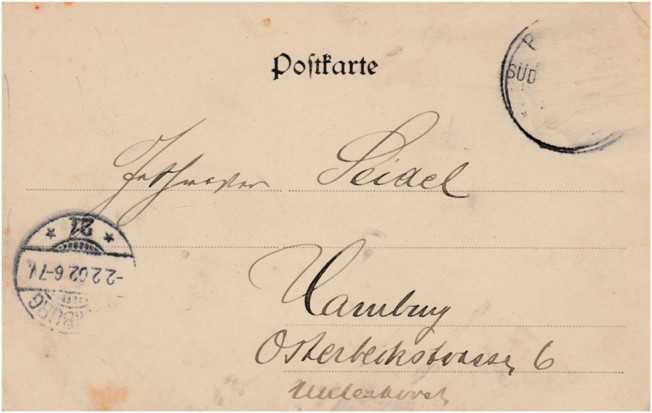 Postkarte
SÜD
Seidel
Hamburg
Osterbeckstrasse 6
21
-2.2.02.6-7
BURG